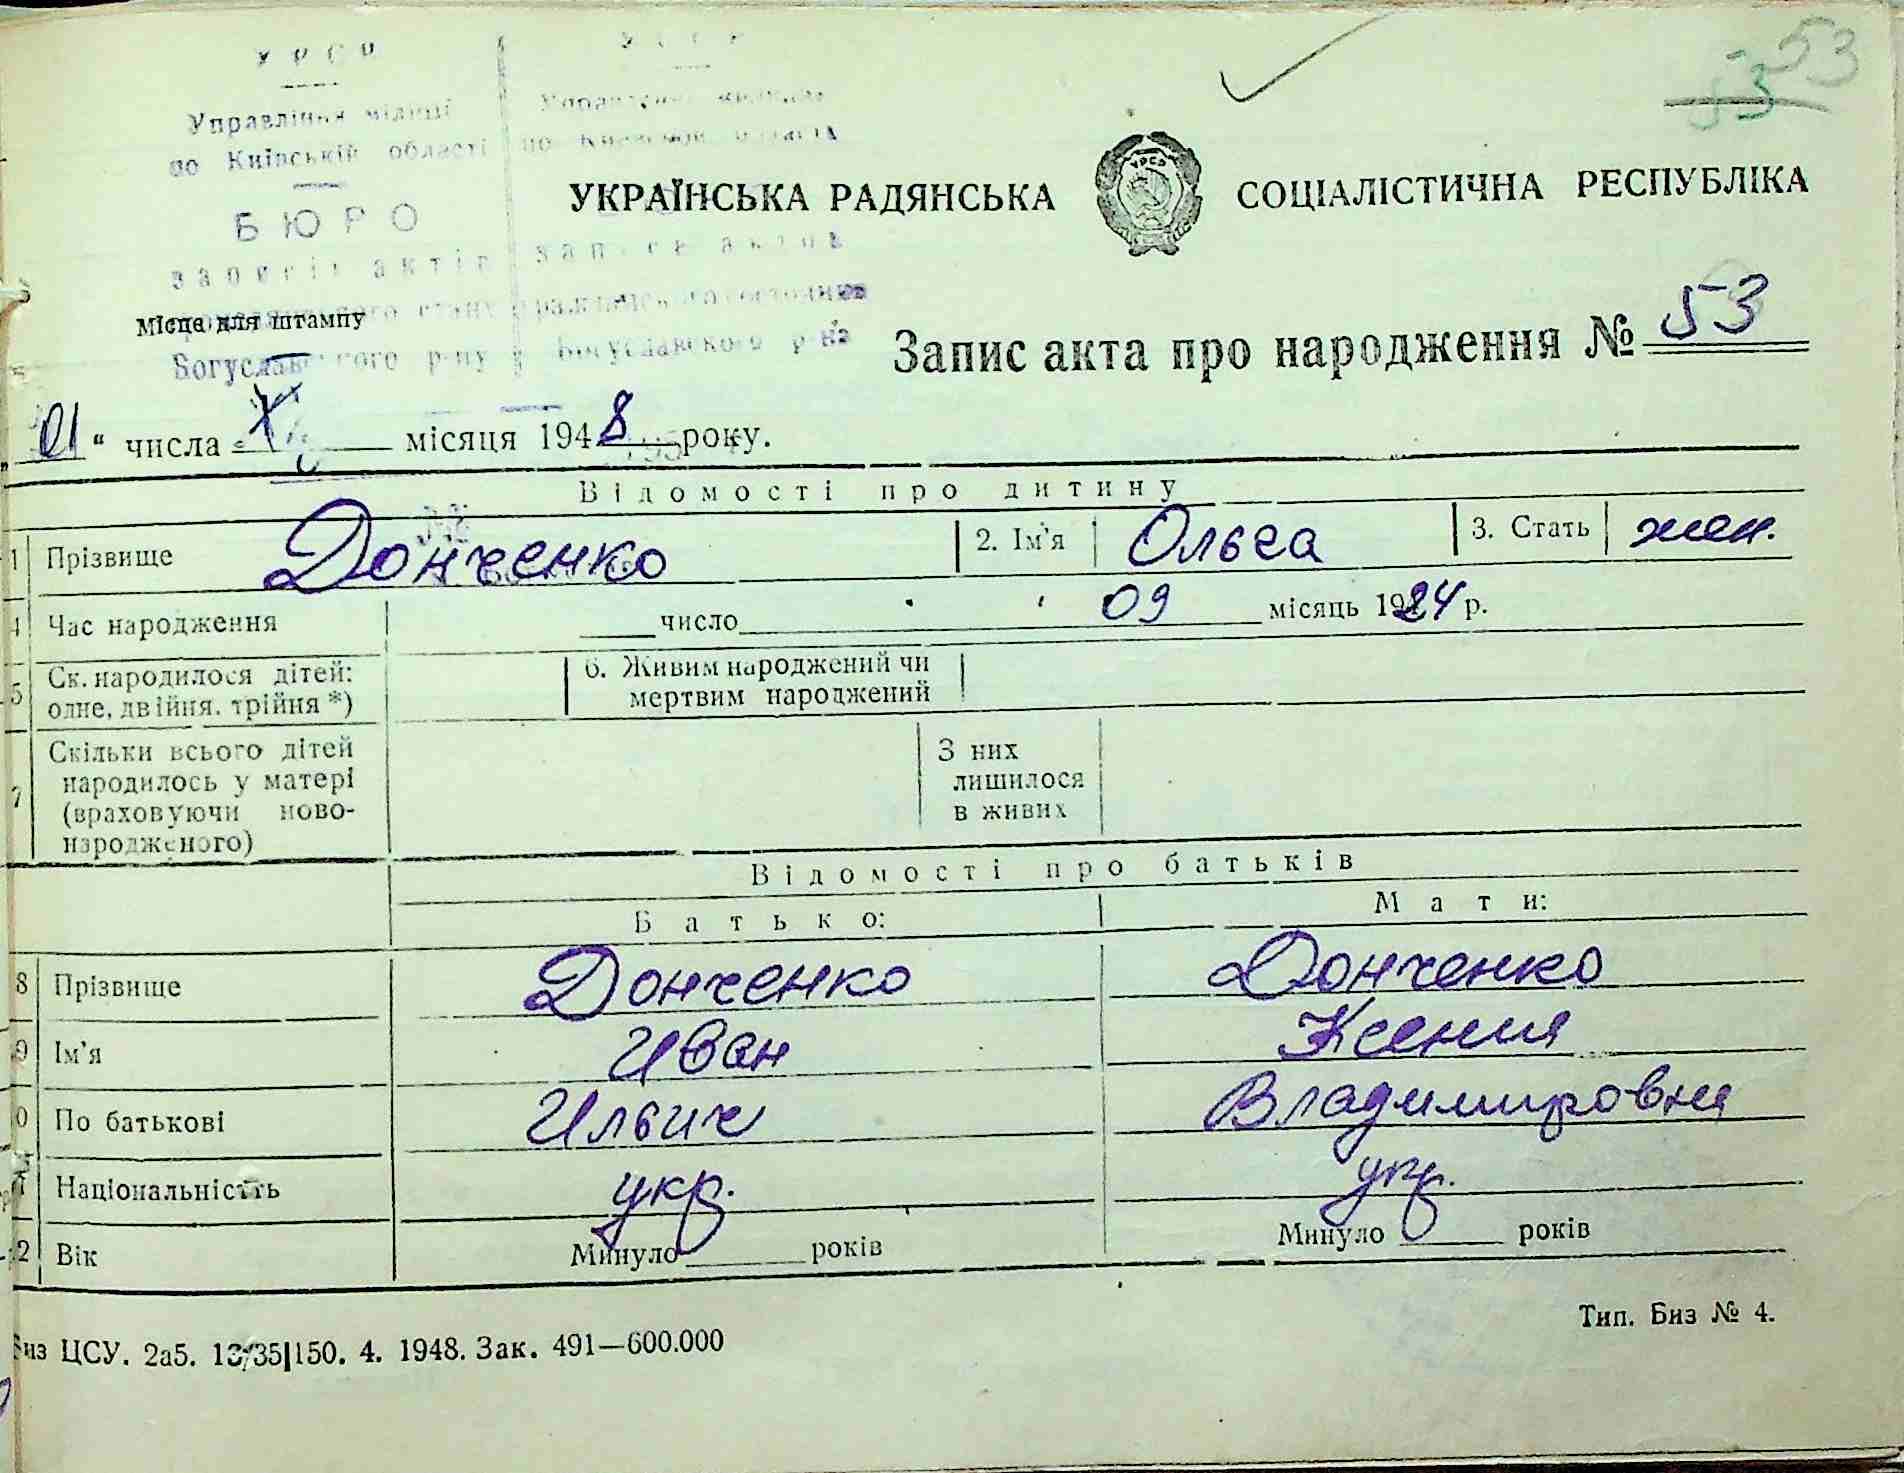 53
53
УРСР
Управління міліції
по Київській області по Киевской области
БЮРО
записів актів записи актов
Місце для штампу
Богуславського р-ну Богуславского р-на
УКРАЇНСЬКА РАДЯНСЬКА СОЦІАЛІСТИЧНА РЕСПУБЛІКА
УРСР
Запис акта про народження № 53
"01" числа X місяця 1948 року.
Відомості про дитину
1 Прізвище Донченко 2. Ім'я Ольга 3. Стать жен.
4 Час народження число 09 місяць 1924 р.
5 Ск. народилося дітей: одне, двійня, трійня *) 6. Живим народжений чи мертвим народжений
7 Скільки всього дітей З них
народилось у матері лишилося
(враховуючи ново- в живих
народженого)
Відомості про батьків
Батько: Мати:
8 Прізвище Донченко Донченко
9 Ім'я Иван Ксения
0 По батькові Ильич Владимировна
Національність укр. укр.
2 Вік Минуло років Минуло років
Биз ЦСУ. 2а5. 13/35|150. 4. 1948. Зак. 491—600.000 Тип. Биз № 4.